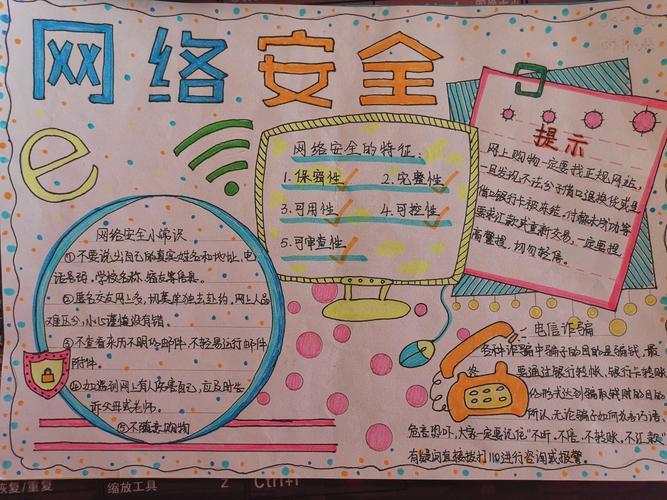 网络安全
e
网络安全的特征:
1. 保密性 2. 完整性
3. 可用性 4. 可控性
5. 可审查性
提示
网上购物一定要找正规网站,
一旦发现不法分子借口退换货或是
借口银行卡被冻结,付款未成功等
要求汇款或重新交易,一定要提
高警惕,切勿轻信。
网络安全小常识
①不要说出自己的真实姓名和地址,电
话号码,学校名称,密友等信息。
②匿名交友网上多,切莫单独去赴约,网上人品
难区分,小心谨慎没有错。
③不查看来历不明的邮件,不轻易运行邮件
附件。
④如遇到网上有人伤害自己,应及时告
诉父母或老师。
⑤不随意购物
电信诈骗
各种诈骗中骗子的目的是骗钱,最
要通过银行转帐,银行卡转账
形式达到骗取钱财的目的
所以,无论骗子如何花言巧语,
危言恐吓,大家一定要记住"不听,不信,不转账,不汇款"
有疑问直接拨打110进行咨询或报警。
恢复/重复
缩放工具
Z
Ctrl+F